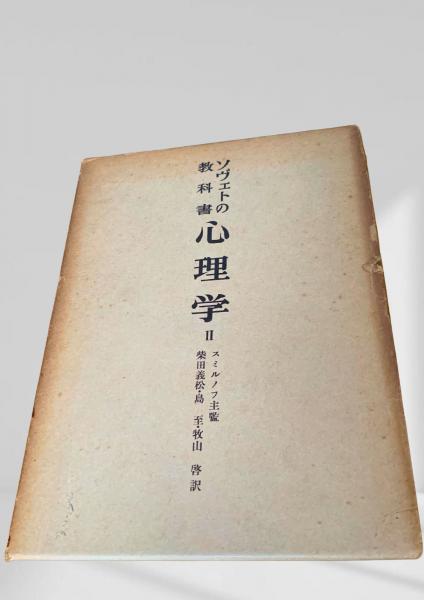 ソヴェトの
教科書
心理学
II
スミルノフ主監
柴田義松・島 至・牧山 啓訳